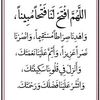 اللَّهُمَّ افْتَحْ لَنَا فَتْحًا مُبِينًا،
وَاهْدِنَا صِرَاطًا مُسْتَقِيمًا، وَانْصُرْنَا
نَصْرًا عَزِيزًا، وَأَتِمَّ عَلَيْنَا نِعْمَتَكَ،
وَأَنْزِلْ فِي قُلُوبِنَا سَكِينَتَكَ،
وَانْشُرْ عَلَيْنَا فَضْلَكَ وَرَحْمَتَكَ